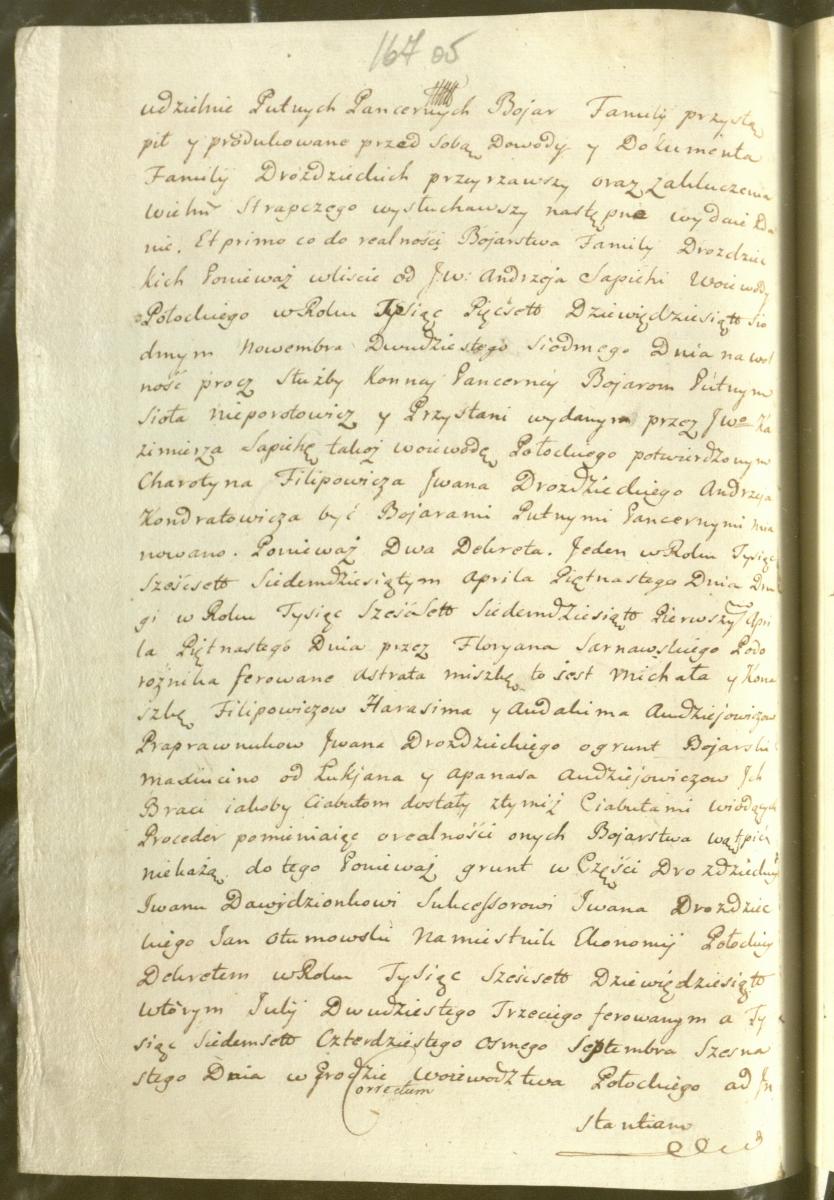 167 05
udzielnie Putnych Pancernych Bojar Familij przystą
pił y produkowane przed sobą Dowody y Dokumenta
Familij Drozdzieckich przeyrzawszy oraz zakluczenia
Strapczego wysłuchawszy następne wydaie zda
nie. Et primo co do realności Bojarstwa Familij Drozdziec
kich Ponieważ w liście od Jw: Andrzeja Sapiehi Woiewody
Połockiego w Roku Tysiąc Pięćsett Dziewiędziesiątt Sio
dmym Nowembra Dwudziestego Siodmego Dnia na wol
ność procz Służby Konnej Pancerney Bojarom Putnym
Sioła Nieporotowicz y Przystani wydanym przez Jwo Ka
zimierza Sapiehę takoż woiewodę Połockiego potwierdzonym
Charotyna Filipowicza Jwana Drozdzieckiego Andrzeja
Kondratowicza być Bojarami Putnymi Pancernymi mia
nowano. Ponieważ Dwa Dekreta. Jeden w Roku Tysiąc
Sześcsett Siedemdziesiątym Aprila Piętnastego Dnia Dru
gi w Roku Tysiąc Sześćsett Siedemdziesiątt Pierwszym Apri
la Piętnastego Dnia przez Floryana Sarnawskiego Podo
roznika ferowane Astrata miszkę to iest Michała y Kona
szkę Filipowiczow Harasima y Audakima Audziejowiczow
Praprawnukow Jwana Drozdzieckiego o grunt Bojarski
od Łukjana y Apanasa Audziejowiczow Jch
Braci iakoby Ciabutom dostały z tymiż Ciabutami wiodących
Proceder pomieniaiąc o realności onych Bojarstwa wątpić
niekażą. do tego Ponieważ grunt w Części Drozdzieckiey
Iwanu Dawidzionkowi Sukcessorowi Iwana Drozdziec
kiego Jan Namiestnik Ekonomij Połockiey
Dekretem w Roku Tysiąc Sześcsett Dziewiędziesiątt
wtórym Julij Dwudziestego Trzeciego ferowanym a Ty
siąc Siedmsett Czterdziestego Osmego Septembra Szesna
stego Dnia w Grodzie Woiewodztwa Połockiego ad In
Correctum
stantiam